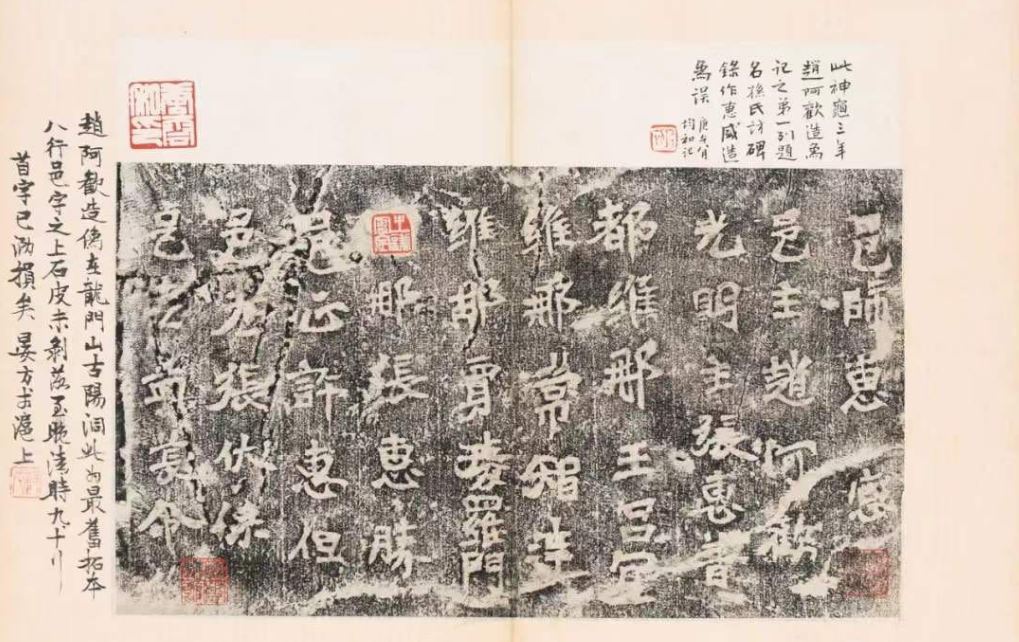 此神龜三年
趙阿歡造
記之第一列題
名孫氏訪碑
錄作惠感造
為誤 庚午
均和記
邑師惠感
邑主趙阿歡
光明主張惠普
都維那王呂
維那常智達
維那賈婆羅門
那張惠勝
邑正許惠但
邑老張伏保
邑老
趙阿歡造像在龍門山古陽洞此為最舊拓本
八行邑字之上石皮未剝落至晚清時九十行
首字已泐損矣 晏方 滬上